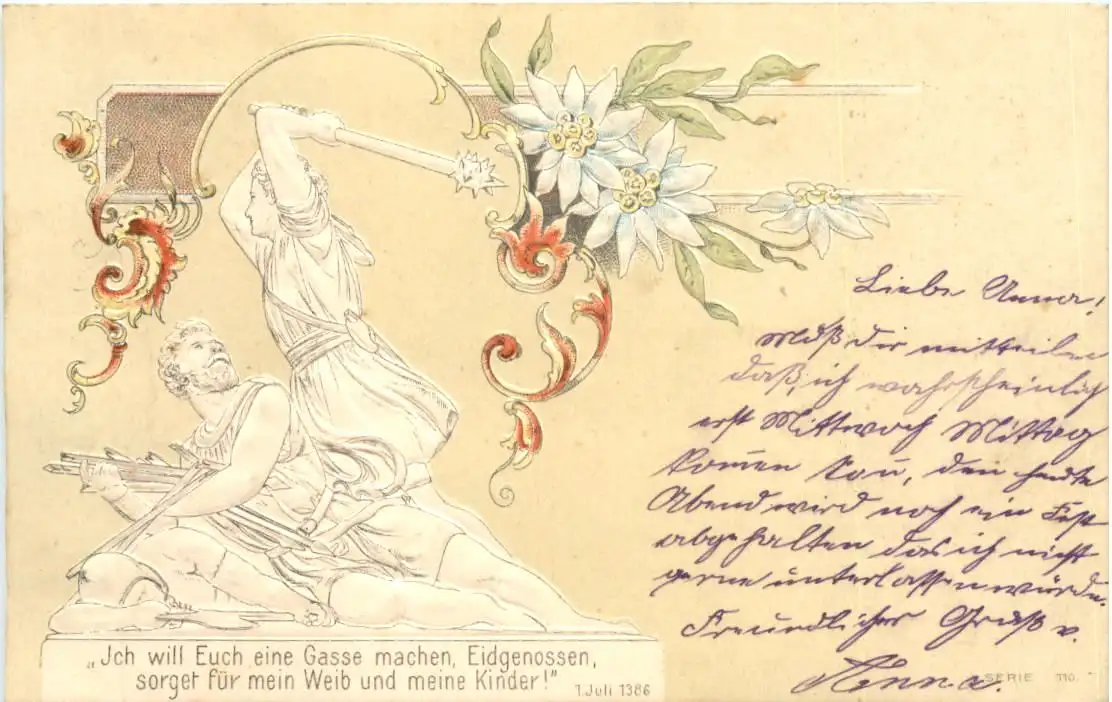 Liebe Anna!
Muß dir mitteilen
daß, ich wahrscheinlich
erst Mittwoch Mittag
komen kan, den heute
Abend wird noch ein Fest
abgehalten das ich nicht
gerne unterlassen würde.
Freundlicher Gruß v.
„Ich will Euch eine Gasse machen, Eidgenossen,
sorget für mein Weib und meine Kinder!"
1. Juli 1386
SERIE 110.